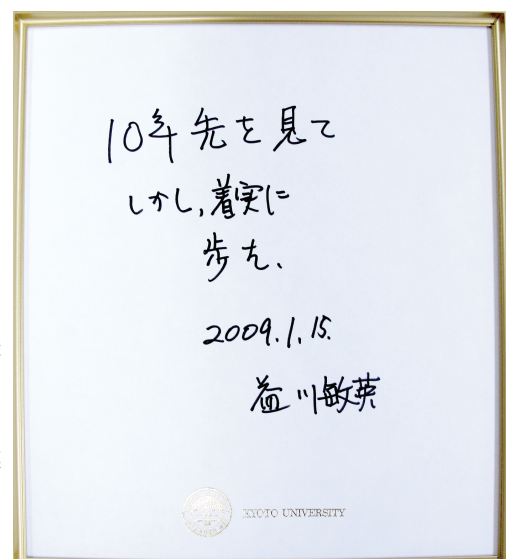 10年先を見て
しかし,着実に
歩む、
2009.1.15.
益川敏英
KYOTO UNIVERSITY